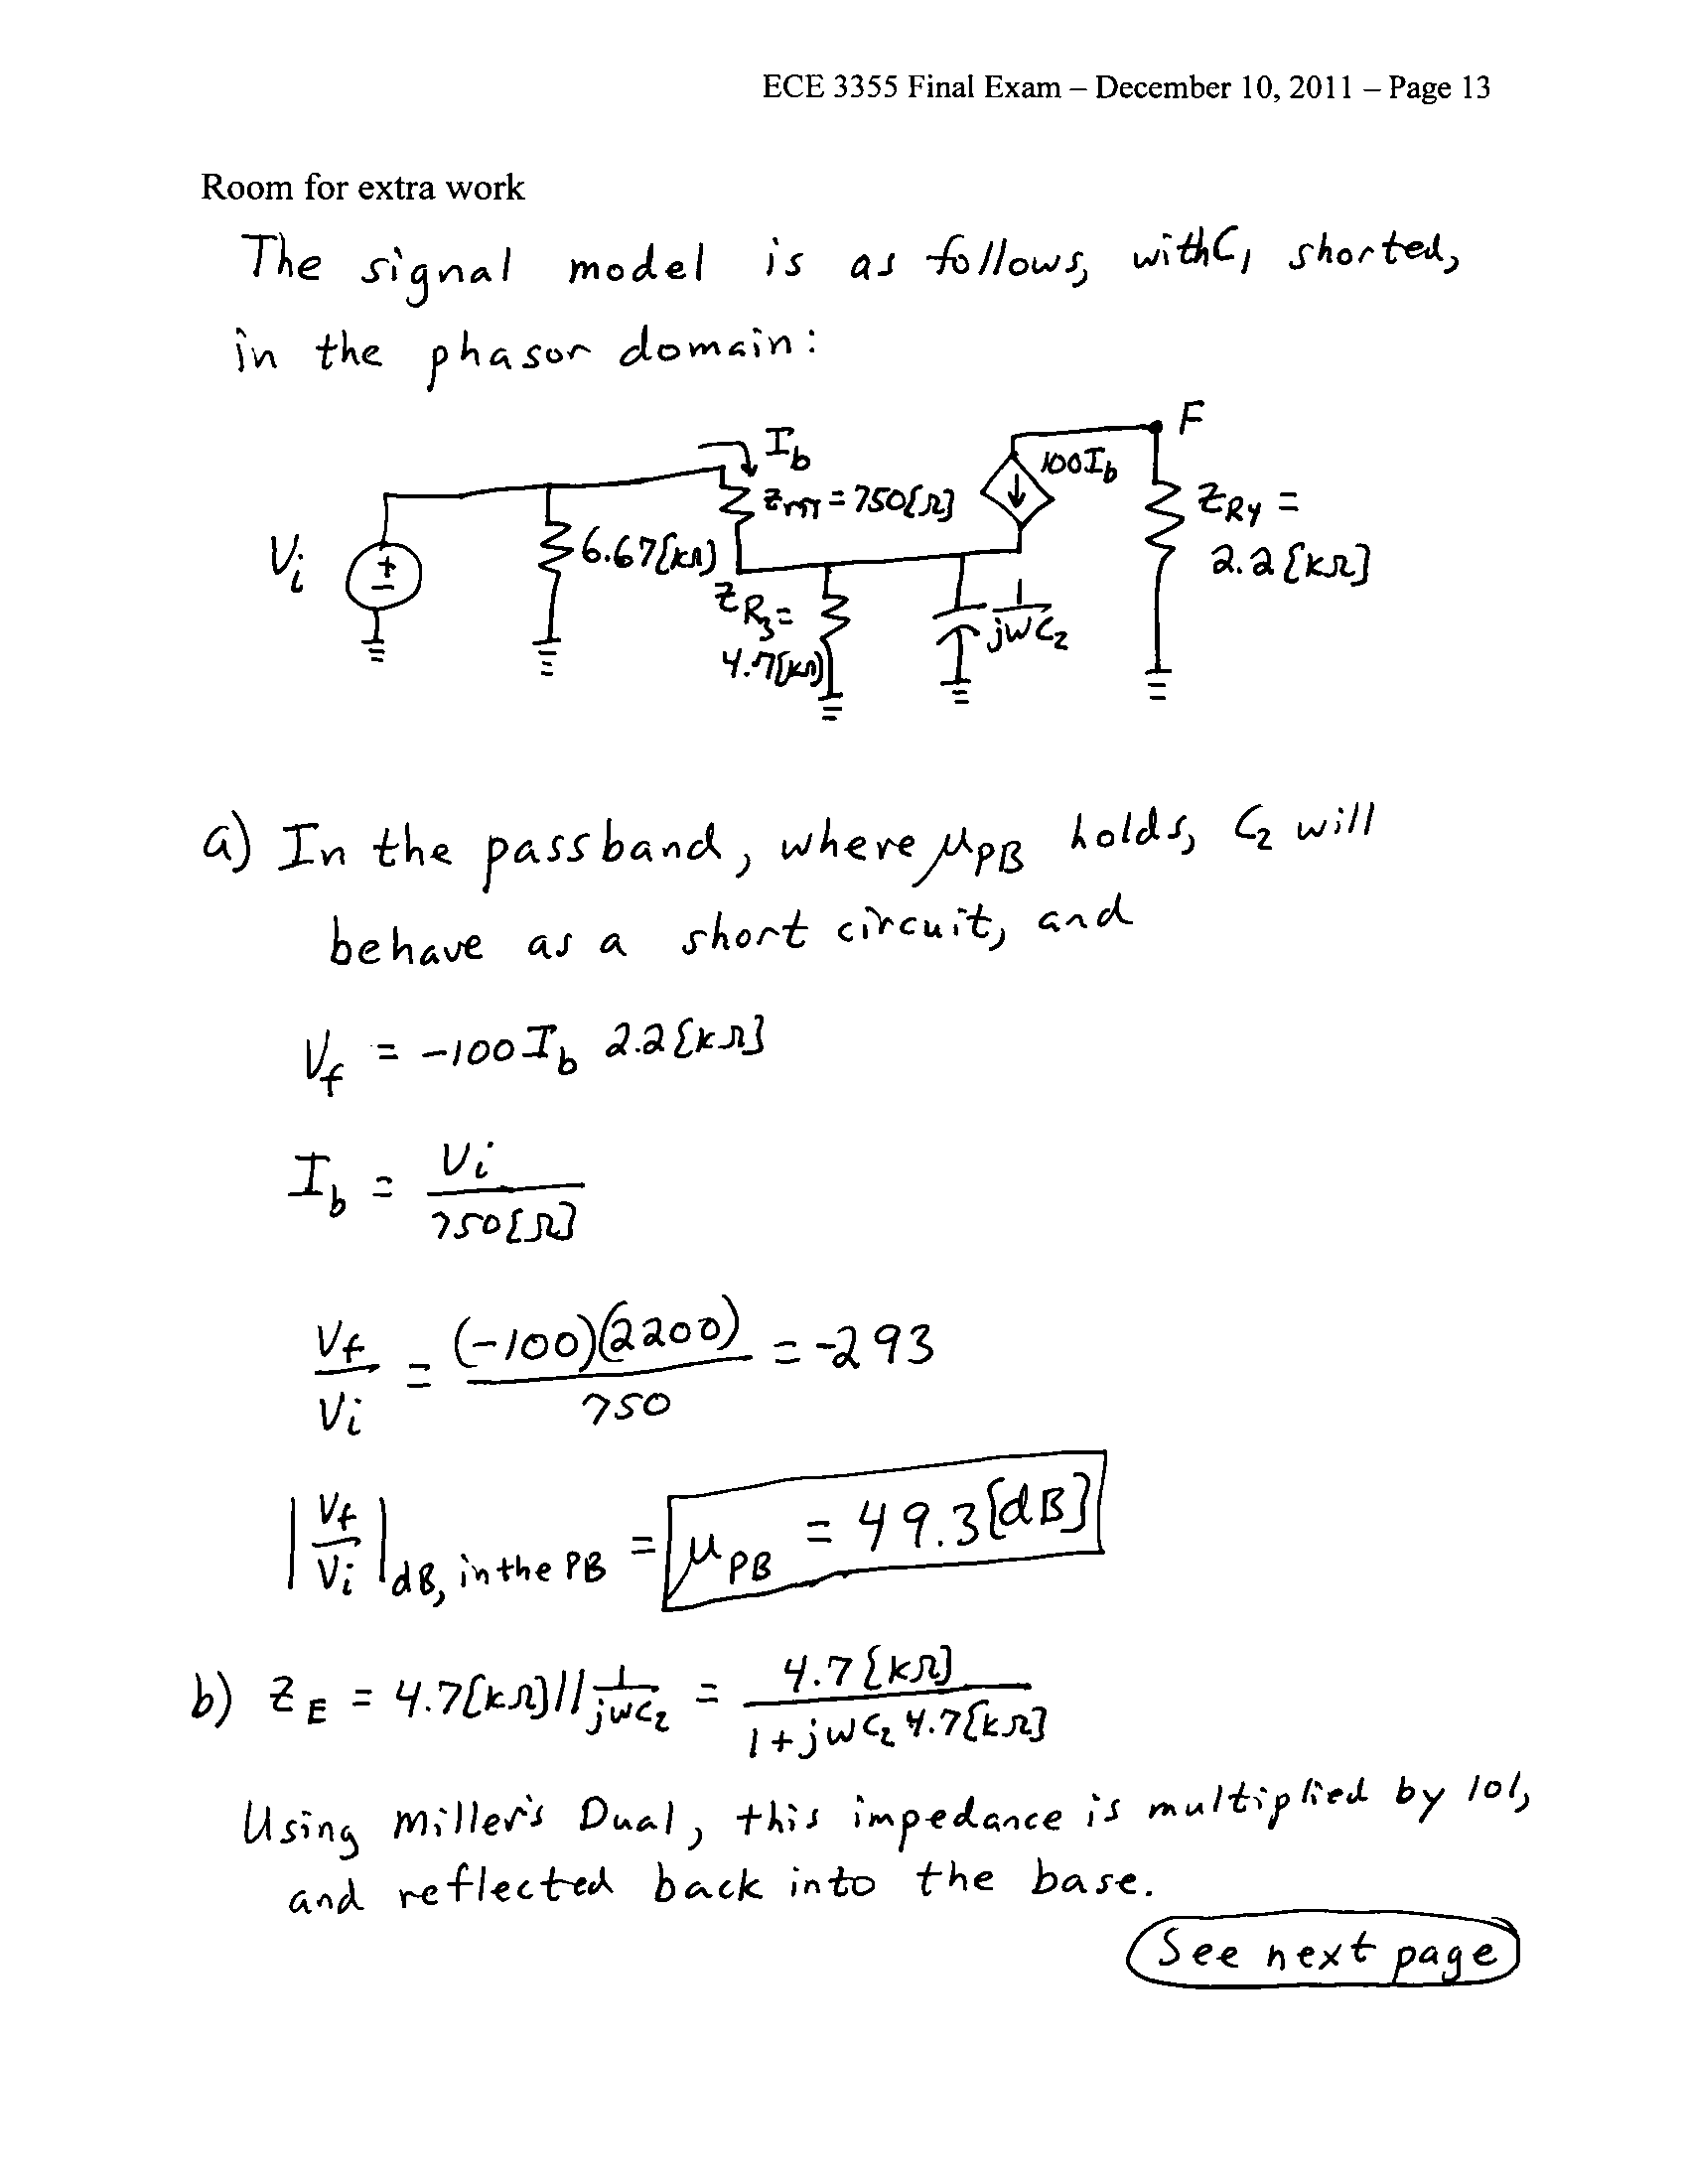 ECE 3355 Final Exam – December 10, 2011 – Page 13
Room for extra work
The signal model is as follows, with C₁ shorted,
in the phasor domain:
I_b
F
100I_b
z_rπ = 750[Ω]
z_R4 =
2.2[kΩ]
V_i
+
−
6.67[kΩ]
z_R3 =
4.7[kΩ]
1/jωC₂
a) In the passband, where μ_PB holds, C₂ will
behave as a short circuit, and
V_f = -100 I_b 2.2[kΩ]
I_b = V_i / 750[Ω]
V_f / V_i = (-100)(2200) / 750 = -293
|V_f / V_i| dB, in the PB = μ_PB = 49.3[dB]
b) z_E = 4.7[kΩ] // 1/jωC₂ = 4.7[kΩ] / 1+jωC₂ 4.7[kΩ]
Using Miller's Dual, this impedance is multiplied by 101,
and reflected back into the base.
See next page